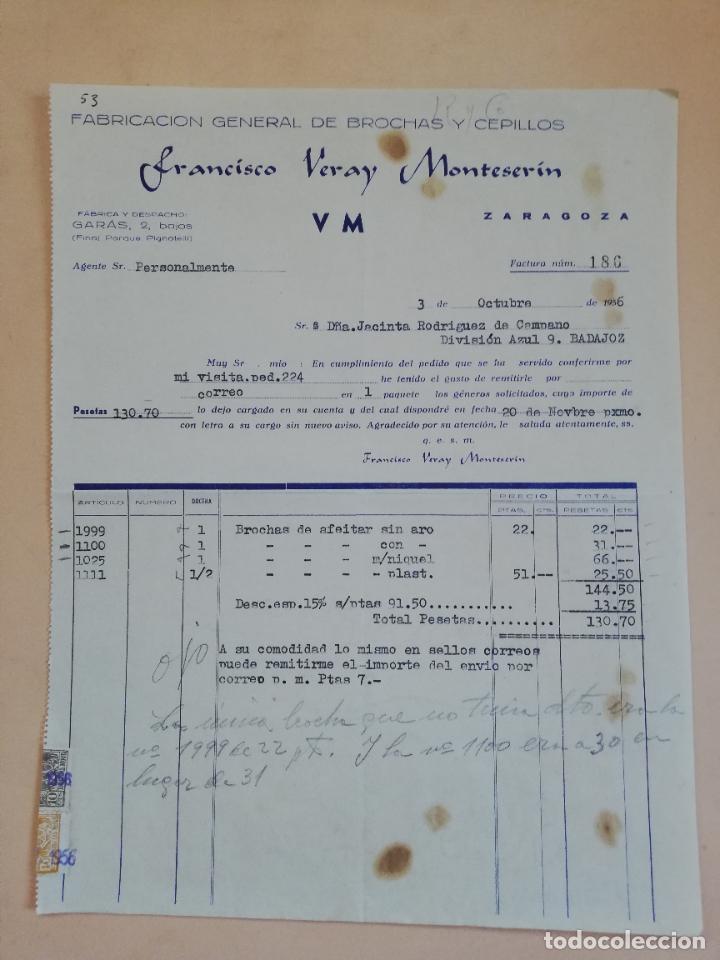 53
FABRICACION GENERAL DE BROCHAS Y CEPILLOS
Francisco Veray Monteserín
FÁBRICA Y DESPACHO:
GARÁS, 2, bajos
(Final Parque Pignatelli)
V M
ZARAGOZA
Agente Sr. Personalmente
Factura núm. 186
3 de Octubre de 1956
Sr. Dña.Jacinta Rodriguez de Campano
División Azul 9. BADAJOZ
Muy Sr . mio : En cumplimiento del pedido que se ha servido conferirme por
mi visita.ped.224 he tenido el gusto de remitirle por
correo en 1 paquete los géneros solicitados, cuyo importe de
Pesetas 130.70 lo dejo cargado en su cuenta y del cual dispondré en fecha 20 de Novbre pxmo.
con letra a su cargo sin nuevo aviso. Agradecido por su atención, le saluda atentamente, ss.
q. e. s. m.
Francisco Veray Monteserín
ARTICULO NUMERO DOCENA PRECIO TOTAL
PTAS. CTS. PESETAS CTS.
1999 1 Brochas de afeitar sin aro 22. 22.--
1100 1 - - - con - 31.--
1025 1 - - - m/niquel 66.--
1111 1/2 - - - plast. 51.-- 25.50
144.50
Desc.esp.15% s/ptas 91.50........... 13.75
Total Pesetas.......... 130.70
ojo
A su comodidad lo mismo en sellos correos
puede remitirme el importe del envio por
correo p. m. Ptas 7.-
La única brocha que no tenia dto. era la
nº 1999 de 22 pts. Y la nº 1100 era a 30 en
lugar de 31
1956
1956
todocoleccion.net